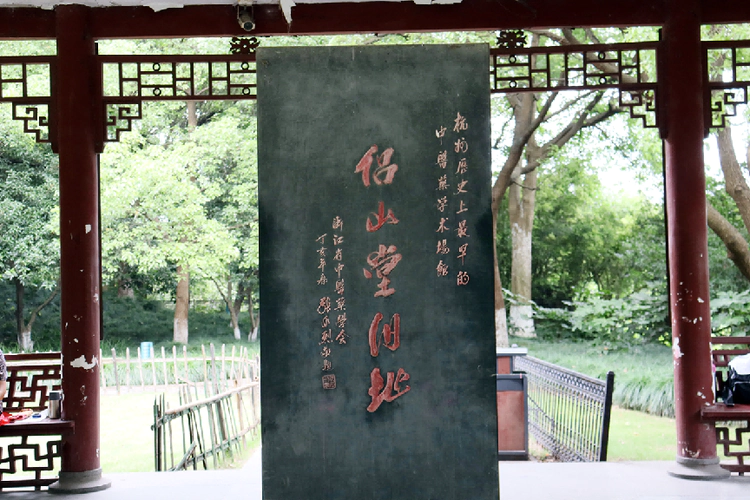 杭州历史上最早的
中医药学术场馆
侣山堂旧址
浙江省中医药学会
丁亥年春